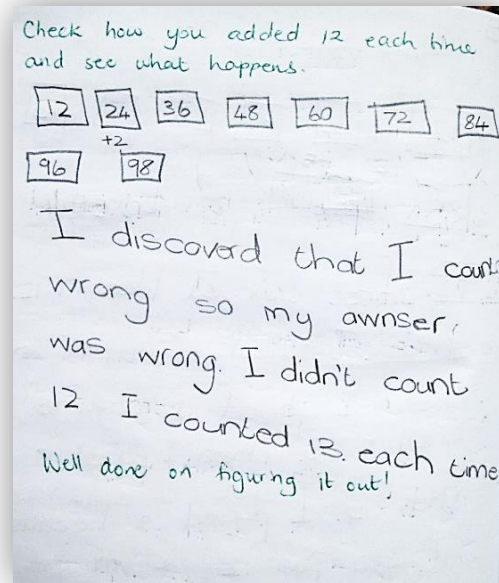 Check how you added 12 each time
and see what happens.
12 24 36 48 60 72 84
+2
96 98
I discoverd that I count
wrong so my awnser,
was wrong. I didn't count
12 I counted 13. each time
Well done on figuring it out!